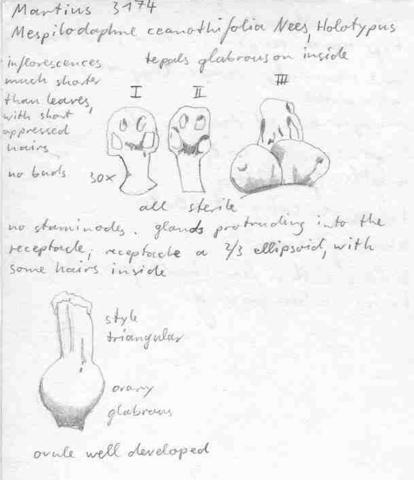 Martius 3174
Mespilodaphne ceanothifolia Nees, Holotypus
inflorescences
much shorter
than leaves,
with short
appressed
hairs
no buds
tepals glabrous on inside
I II III
30x
all sterile
no staminodes. glands protruding into the
receptacle; receptacle a 2/3 ellipsoid, with
some hairs inside
style
triangular
ovary
glabrous
ovule well developed